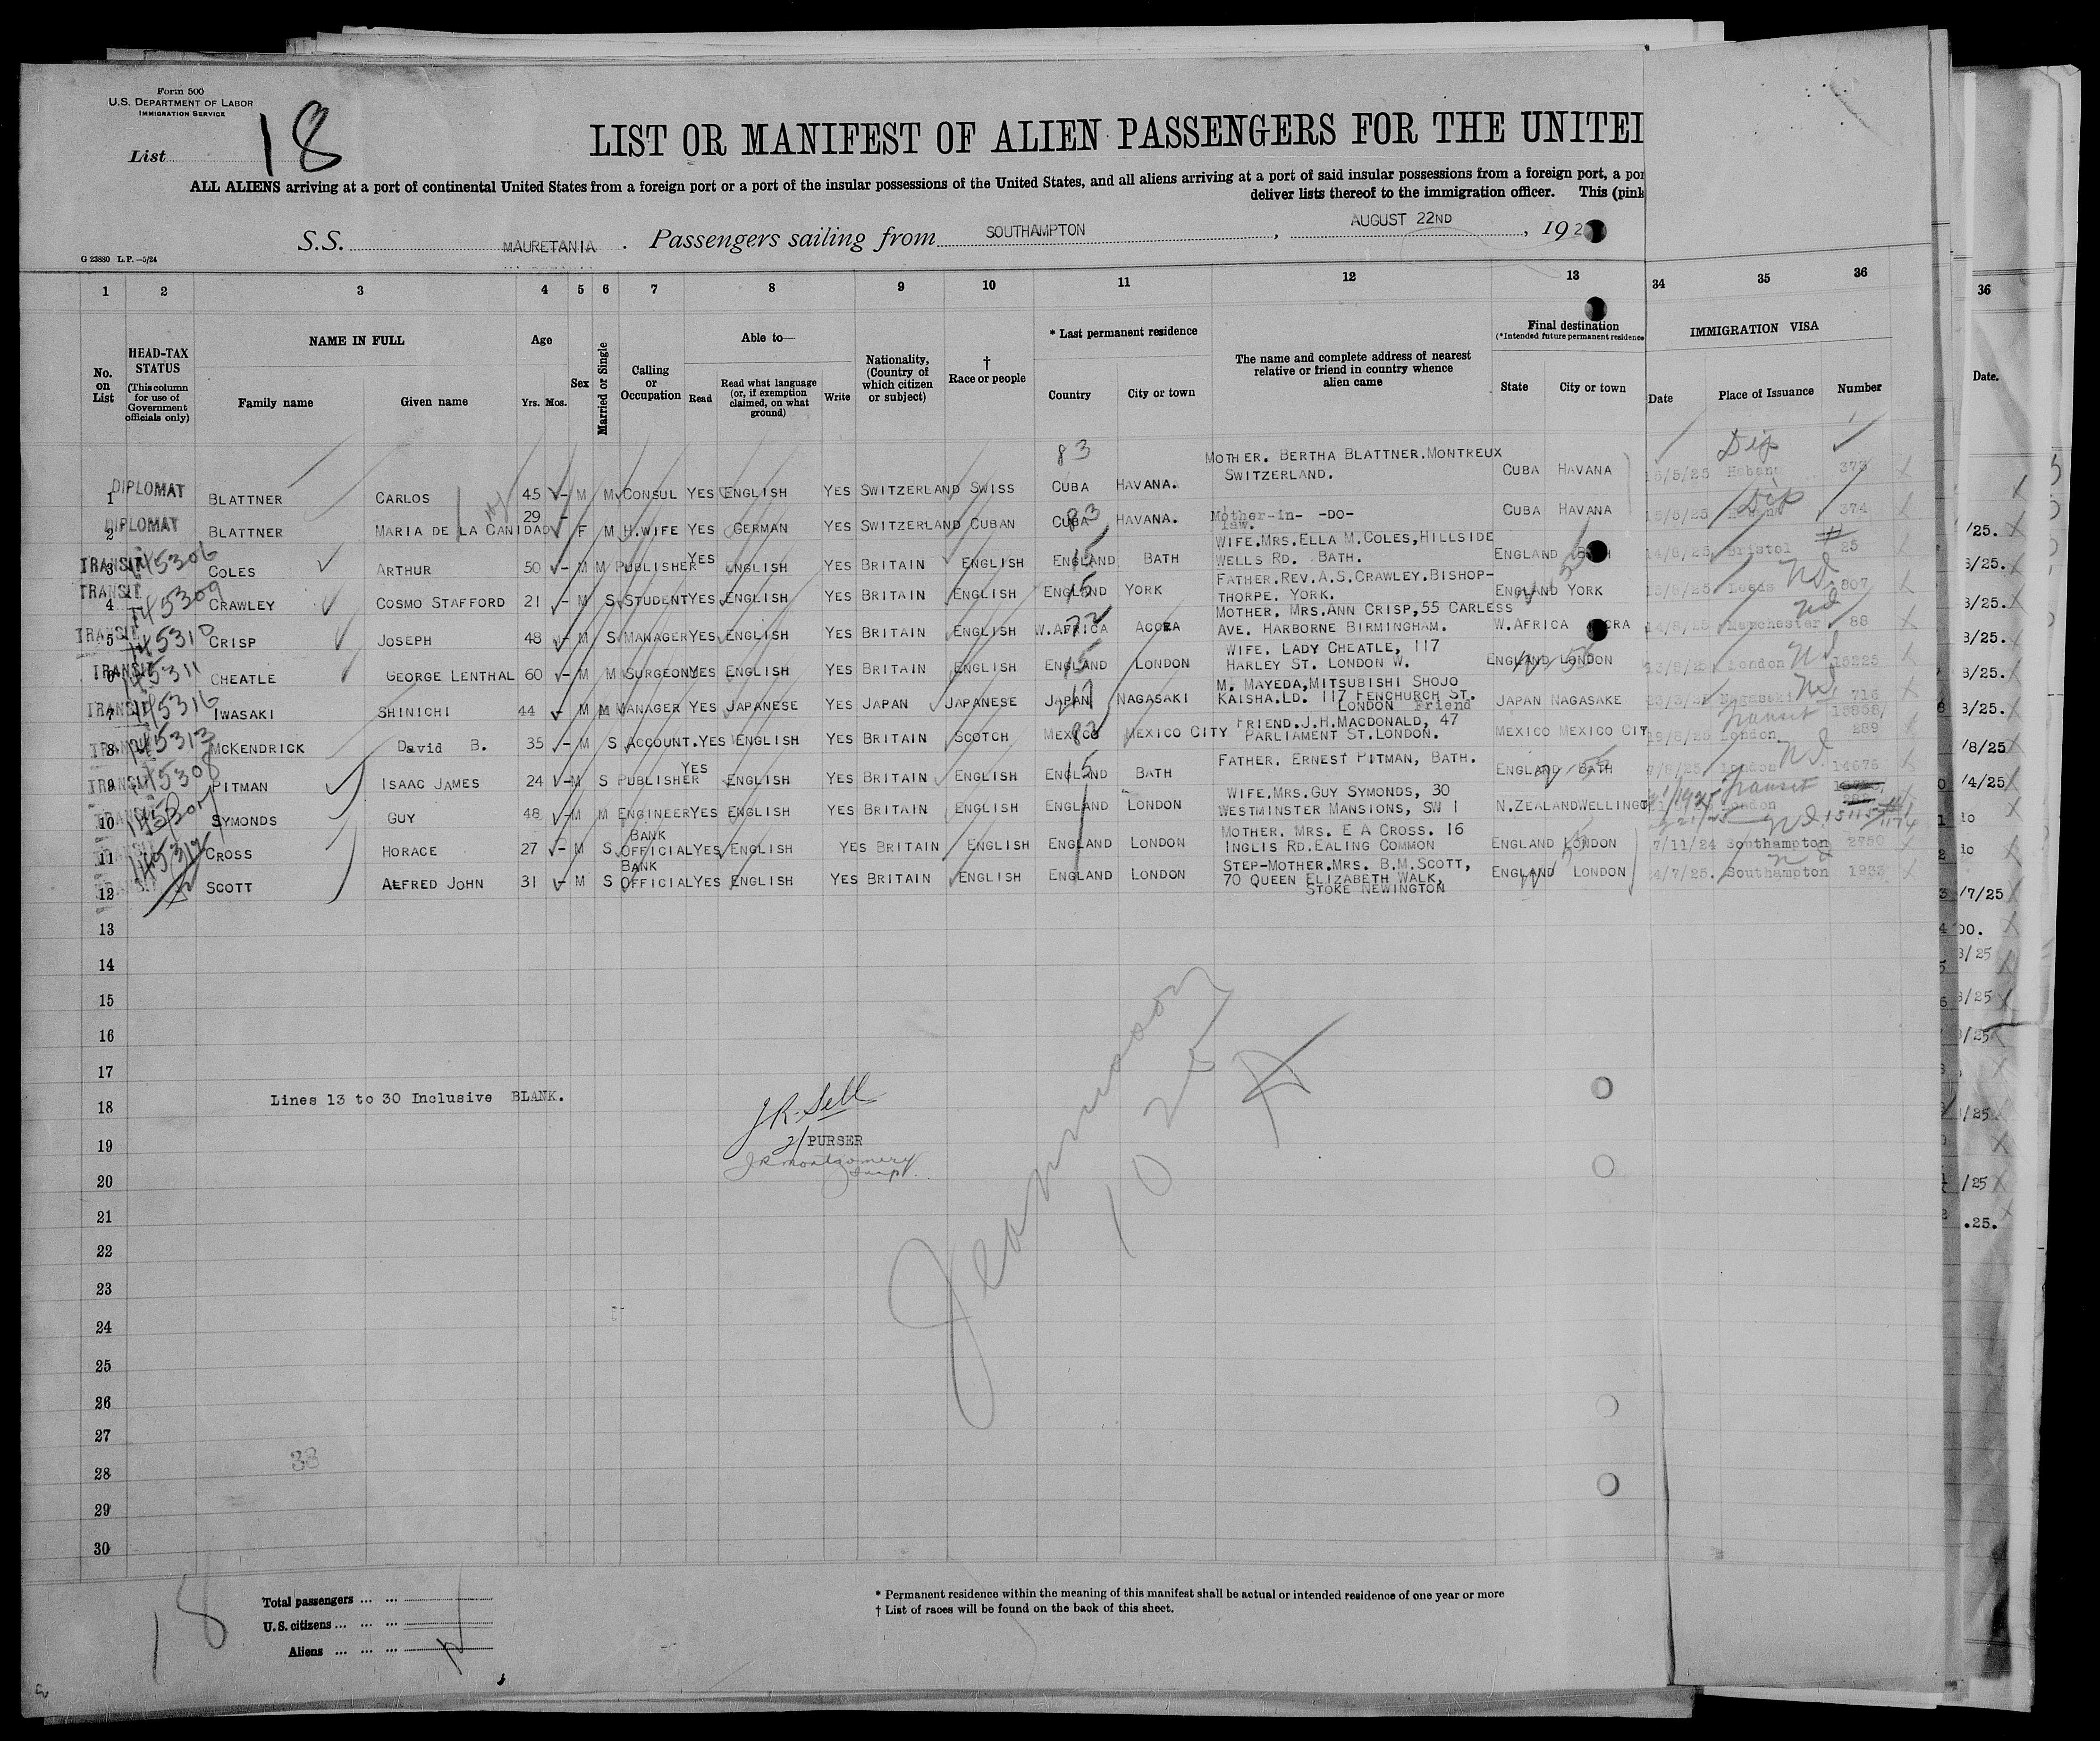 Form 500
U.S. DEPARTMENT OF LABOR
IMMIGRATION SERVICE
List 18
LIST OR MANIFEST OF ALIEN PASSENGERS FOR THE UNITE
ALL ALIENS arriving at a port of continental United States from a foreign port or a port of the insular possessions of the United States, and all aliens arriving at a port of said insular possessions from a foreign port, a por
deliver lists thereof to the immigration officer. This (pink
S.S. MAURETANIA . Passengers sailing from SOUTHAMPTON , AUGUST 22ND , 192
G 23880 L.P.—5/24
1 2 3 4 5 6 7 8 9 10 11 12 13 34 35 36 36
No. on List
HEAD-TAX STATUS
(This column for use of Government officials only)
NAME IN FULL
Family name Given name
Age
Yrs. Mos.
Sex
Married or Single
Calling or Occupation
Able to—
Read
Read what language (or, if exemption claimed, on what ground)
Write
Nationality, (Country of which citizen or subject)
† Race or people
* Last permanent residence
Country City or town
The name and complete address of nearest relative or friend in country whence alien came
Final destination
(*Intended future permanent residence
State City or town
IMMIGRATION VISA
Date Place of Issuance Number
Date.
1 DIPLOMAT BLATTNER CARLOS 45 - M M CONSUL YES ENGLISH YES SWITZERLAND SWISS 83 CUBA HAVANA. MOTHER. BERTHA BLATTNER.MONTREUX SWITZERLAND. CUBA HAVANA 15/5/25 Habana Dip 373
2 DIPLOMAT BLATTNER MARIA DE LA CANIDAD 29 - F M H.WIFE YES GERMAN YES SWITZERLAND CUBAN 83 CUBA HAVANA. Mother-in-law. -DO- CUBA HAVANA 15/5/25 Habana Dip 374
3 TRANSIT 145306 COLES ARTHUR 50 - M M PUBLISHER YES ENGLISH YES BRITAIN ENGLISH 15 ENGLAND BATH WIFE.MRS.ELLA M.COLES,HILLSIDE WELLS RD. BATH. ENGLAND 14/8/25 Bristol 25
4 TRANSIT 145309 CRAWLEY COSMO STAFFORD 21 - M S STUDENT YES ENGLISH YES BRITAIN ENGLISH 15 ENGLAND YORK FATHER.REV.A.S.CRAWLEY.BISHOP-THORPE. YORK. ENGLAND YORK 13/8/25 Leeds Nd 807
5 TRANSIT 145310 CRISP JOSEPH 48 - M S MANAGER YES ENGLISH YES BRITAIN ENGLISH 72 W.AFRICA ACCRA MOTHER. MRS.ANN CRISP,55 CARLESS AVE. HARBORNE BIRMINGHAM. W.AFRICA CRA 14/8/25 Manchester Nd 88
6 TRANSIT 145311 CHEATLE GEORGE LENTHAL 60 - M M SURGEON YES ENGLISH YES BRITAIN ENGLISH 15 ENGLAND LONDON WIFE. LADY CHEATLE, 117 HARLEY ST. LONDON W. ENGLAND LONDON 13/8/25 London Nd 15225
7 TRANSIT 145316 IWASAKI SHINICHI 44 - M M MANAGER YES JAPANESE YES JAPAN JAPANESE JAPAN NAGASAKI M. MAYEDA,MITSUBISHI SHOJO KAISHA.LD. 117 FENCHURCH ST. LONDON Friend JAPAN NAGASAKE 23/3/25 Nagasaki Nd 716
8 TRANSIT 145313 MCKENDRICK David B. 35 - M S ACCOUNT. YES ENGLISH YES BRITAIN SCOTCH 82 MEXICO MEXICO CITY FRIEND.J.H.MACDONALD, 47 PARLIAMENT ST.LONDON. MEXICO MEXICO CIT 19/8/25 London Transit 15856/289
9 TRANSIT 145308 PITMAN ISAAC JAMES 24 - M S PUBLISHER YES ENGLISH YES BRITAIN ENGLISH 15 ENGLAND BATH FATHER. ERNEST PITMAN, BATH. ENGLAND BATH 7/8/25 London Nd 14675
10 TRANSIT SYMONDS GUY 48 - M M ENGINEER YES ENGLISH YES BRITAIN ENGLISH ENGLAND LONDON WIFE.MRS.GUY SYMONDS, 30 WESTMINSTER MANSIONS, SW 1 N.ZEALAND WELLINGT London Transit
11 CROSS HORACE 27 - M S BANK OFFICIAL YES ENGLISH YES BRITAIN ENGLISH ENGLAND LONDON MOTHER. MRS. E A CROSS. 16 INGLIS RD.EALING COMMON ENGLAND LONDON 7/11/24 Southampton Nd 2750
12 SCOTT ALFRED JOHN 31 - M S BANK OFFICIAL YES ENGLISH YES BRITAIN ENGLISH ENGLAND LONDON STEP-MOTHER.MRS. B.M.SCOTT, 70 QUEEN ELIZABETH WALK, STOKE NEWINGTON ENGLAND LONDON 24/7/25. Southampton Nd 1933
13
14
15
16
17
Lines 13 to 30 Inclusive BLANK.
18
J.R. Sell
19
2/ PURSER
J R Montgomery
20
21
22
23
24
25
26
27
28
33
29
30
18
Total passengers ... ...
U.S. citizens ... ... ...
Aliens ... ... ...
* Permanent residence within the meaning of this manifest shall be actual or intended residence of one year or more
† List of races will be found on the back of this sheet.